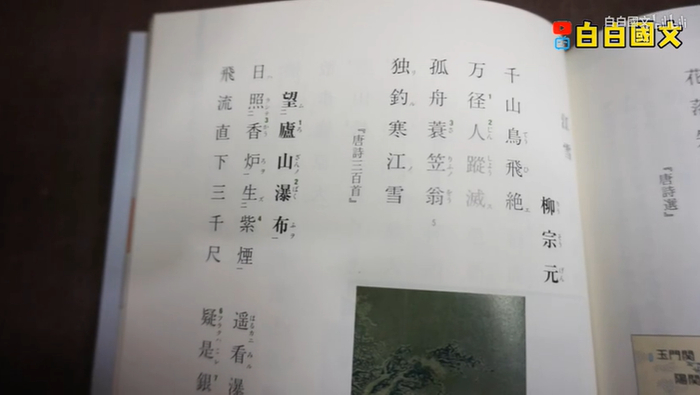 白白國文
花落
『唐詩選』
玉門関
陽関
柳宗元
千山鳥飛絶
万径人蹤滅
孤舟蓑笠翁
独釣寒江雪
『唐詩三百首』
望廬山瀑布
日照香炉生紫煙
遥看瀑
飛流直下三千尺
疑是銀